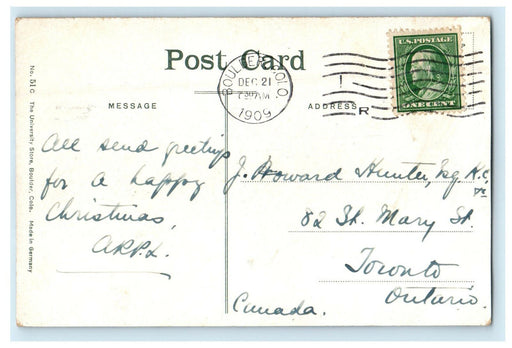 Post Card
BOULDER, COLO.
DEC 21
7 30 AM
1909
U.S. POSTAGE
ONE CENT
R
MESSAGE
ADDRESS
All send greetings
for a happy
Christmas,
J. Howard Hunter, Esq. K.C.
82 St. Mary St.
Toronto
Ontario.
Canada.
No. 51 C The University Store, Boulder, Colo. Made in Germany